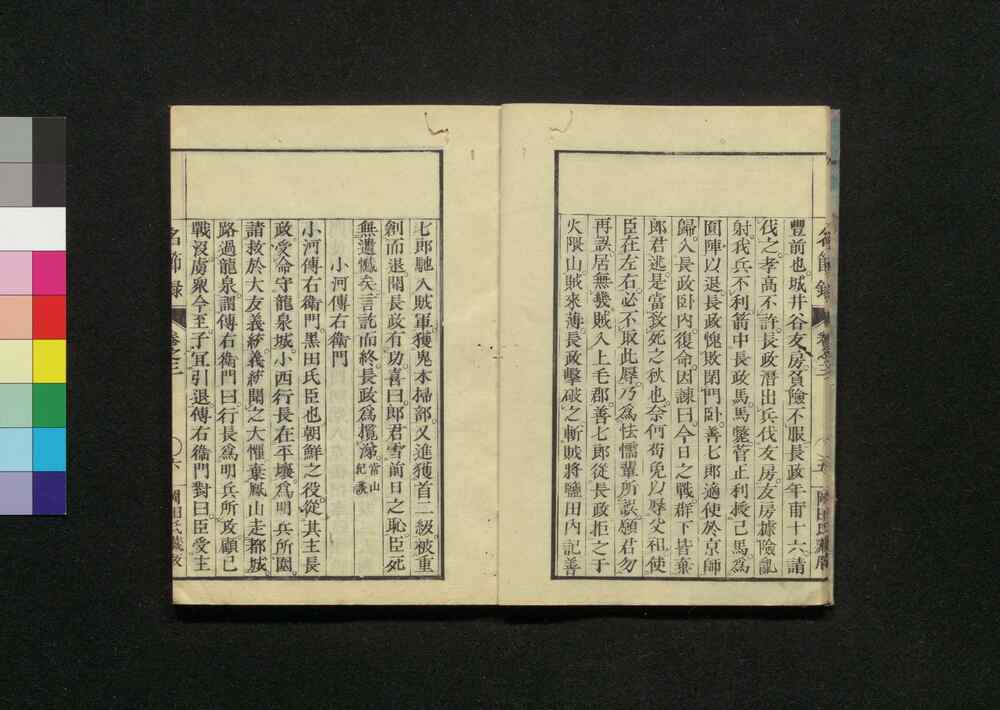 名節錄 卷之三 五 岡田氏藏版
豐前也。城井谷友房。負險不服。長政年甫十六。請
伐之。孝高不許。長政潛出兵伐友房。友房據險亂
射。我兵不利。箭中長政馬。馬斃。菅正利授己馬。爲
圓陣以退。長政愧敗。閉門臥。善七郎適使於京師
歸。入長政臥內。復命。因諫曰。今日之戰。群下皆棄
郎君逃。是當致死之秋也。奈何苟免以辱父祖。使
臣在左右。必不取此辱。乃爲怯懦輩所誤。願君勿
再誤。居無幾。賊入上毛郡。善七郎從長政拒之于
火隈山。賊來薄。長政擊破之。斬賊將鹽田內記。善
七郎馳入賊軍。獲鬼木掃部。又進獲首二級。被重
創而退。聞長政有功。喜曰。郎君雪前日之恥。臣死
無遺憾矣。言訖而終。長政爲攬涕。常山紀談
小河傳右衛門
小河傳右衛門。黑田氏臣也。朝鮮之役。從其主長
政。受命守龍泉城。小西行長在平壤。爲明兵所圍。
請救於大友義統。義統聞之大懼。棄鳳山走都城。
路過龍泉。謂傳右衛門曰。行長爲明兵所攻。顧已
戰沒。虜衆今至。子宜引退。傳右衛門對曰。臣受主
名節錄 卷之三 六 岡田氏藏版